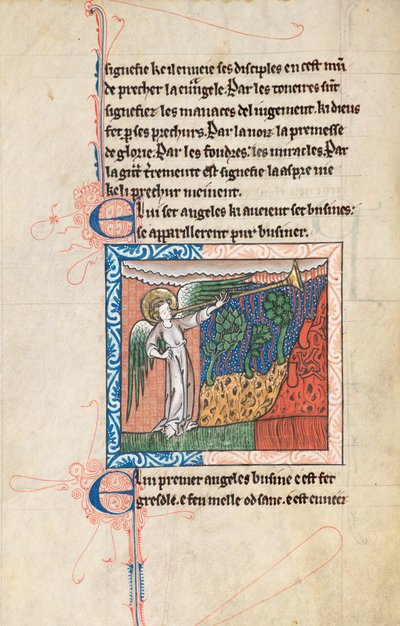 signefie ke il enueie ses disciples en cest mũ
de precher la euãgele. Par les toneires sũt
signefiet les manaces del iugement. ki dieus
fet p̱ ses prechurs. Par la uoiz. la premesse
de glorie. Par les foudres: les miracles. Par
la t̾rement est signefie la aspre uie
ke li prechur meinent.
E li set angeles ki aueient set busines:
se apparillerent pur businer.
E li premer angeles busine e est fet
gresdle. e feu melle od sanc. e est enueez